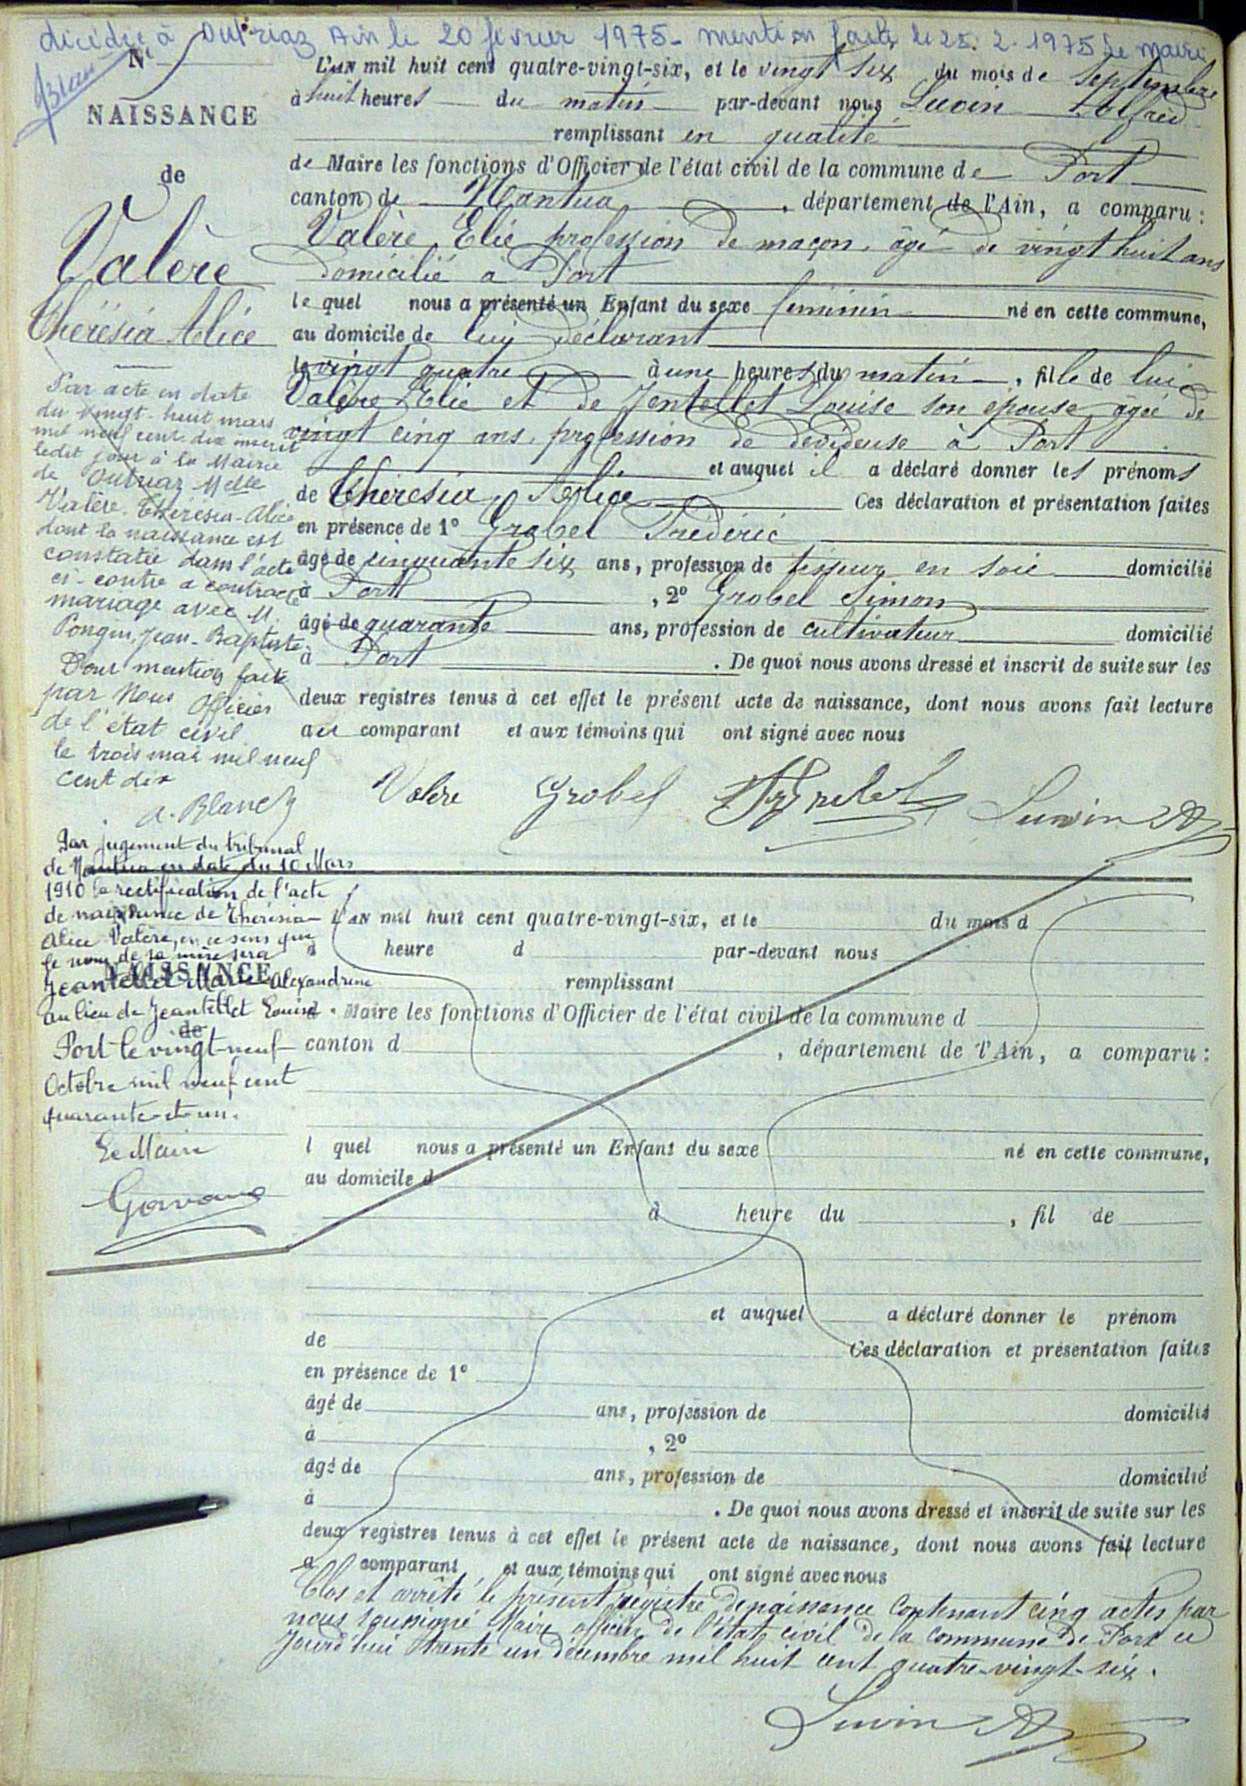 décédée à Outriaz Ain le 20 février 1975 - mention faite le 25.2.1975 Le maire
N°
NAISSANCE
de
Valère
Thérésia Alice
L'an mil huit cent quatre-vingt-six, et le vingt six du mois de septembre
à huit heures du matin par-devant nous Luvin Alfred
remplissant en qualité
de Maire les fonctions d'Officier de l'état civil de la commune de Port
canton de Nantua, département de l'Ain, a comparu :
Valère Élie profession de maçon, âgé de vingt huit ans
domicilié à Port
le quel nous a présenté un Enfant du sexe féminin né en cette commune,
au domicile de lui déclarant
le vingt quatre à une heure du matin, fille de lui
Valère Elie et de Jentellet Louise son épouse agée de
vingt cinq ans, profession de dévideuse à Port
et auquel il a déclaré donner les prénoms
de Thérésia, Alice Ces déclaration et présentation faites
en présence de 1° Grobel Frédéric
âgé de cinquante six ans, profession de tisseur en soie domicilié
à Port, 2° Grobel Simon
âgé de quarante ans, profession de cultivateur domicilié
à Port. De quoi nous avons dressé et inscrit de suite sur les
deux registres tenus à cet effet le présent acte de naissance, dont nous avons fait lecture
au comparant et aux témoins qui ont signé avec nous
Valère Grobel Luvin
Par acte en date
du vingt-huit mars
mil neuf cent dix inscrit
ledit jour à la Mairie
de Outriaz Melle
Valère Thérésia-Alice
dont la naissance est
constatée dans l'acte
ci-contre a contracté
mariage avec M.
Poncin, Jean-Baptiste
Pour mention faite
par Nous Officier
de l'état civil
le trois mai mil neuf
cent dix
A. Blanc
Par jugement du tribunal
de Nantua en date du 10 Mars
1910 la rectification de l'acte
de naissance de Thérésia
Alice Valère, en ce sens que
le nom de sa mère sera
Jeantellet Marie Alexandrine
au lieu de Jeantellet Louise.
Port le vingt-neuf
Octobre mil neuf cent
quarante-et-un.
Le Maire
NAISSANCE
de
L'an mil huit cent quatre-vingt-six, et le du mois d
à heure d par-devant nous
remplissant
d Maire les fonctions d'Officier de l'état civil de la commune d
canton d , département de l'Ain, a comparu :
l quel nous a présenté un Enfant du sexe né en cette commune,
au domicile d
à heure du , fil de
et auquel a déclaré donner le prénom
de Ces déclaration et présentation faites
en présence de 1°
âgé de ans, profession de domicilié
à , 2°
âgé de ans, profession de domicilié
à . De quoi nous avons dressé et inscrit de suite sur les
deux registres tenus à cet effet le présent acte de naissance, dont nous avons fait lecture
a comparant et aux témoins qui ont signé avec nous
Clos et arrêté le présent registre de naissance contenant cinq actes par
nous soussigné Maire officier de l'état civil de la commune de Port ce
jourd'hui trente un décembre mil huit cent quatre-vingt-six.
Luvin